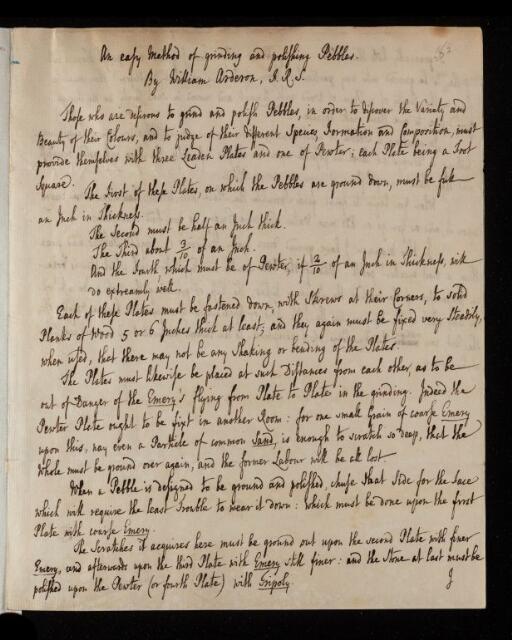 An easy Method of grinding and polishing Pebbles.
By William Arderon, F.R.S.
Those who are desirous to grind and polish Pebbles, in order to discover the Variety and
Beauty of their Colours, and to judge of their different Species, Formation and Composition, must
provide themselves with three Leaden Plates and one of Pewter; each Plate being a Foot
Square.
The first of these Plates, on which the Pebbles are ground down, must be full
an Inch in Thickness.
The Second must be half an Inch thick.
The Third about 3/10 of an Inch.
And the Fourth, which must be of Pewter, if 2/10 of an Inch in Thickness, will
do extreamly well.
Each of these Plates must be fastened down, with Skrews at their Corners, to solid
Planks of Wood 5 or 6 Inches thick at least; and they again must be fixed very steadily,
when used, that there may not be any Shaking or bending of the Plates.
The Plates must likewise be placed at such Distances from each other, as to be
out of Danger of the Emery's flying from Plate to Plate in the grinding. Indeed the
Pewter Plate ought to be fixt in another Room: for one small Grain of coarse Emery
upon this, nay even a Particle of common Sand, is enough to scratch so deep, that the
Whole must be ground over again, and the former Labour will be all lost.
When a Pebble is designed to be ground and polished, chuse that Side for the Face
which will require the least Trouble to wear it down: which must be done upon the first
Plate with coarse Emery.
The Scratches it acquires here must be ground out upon the second Plate with finer
Emery, and afterwards upon the third Plate with Emery still finer: and the Stone at last must be
polished upon the Pewter (or fourth Plate) with Tripoly.